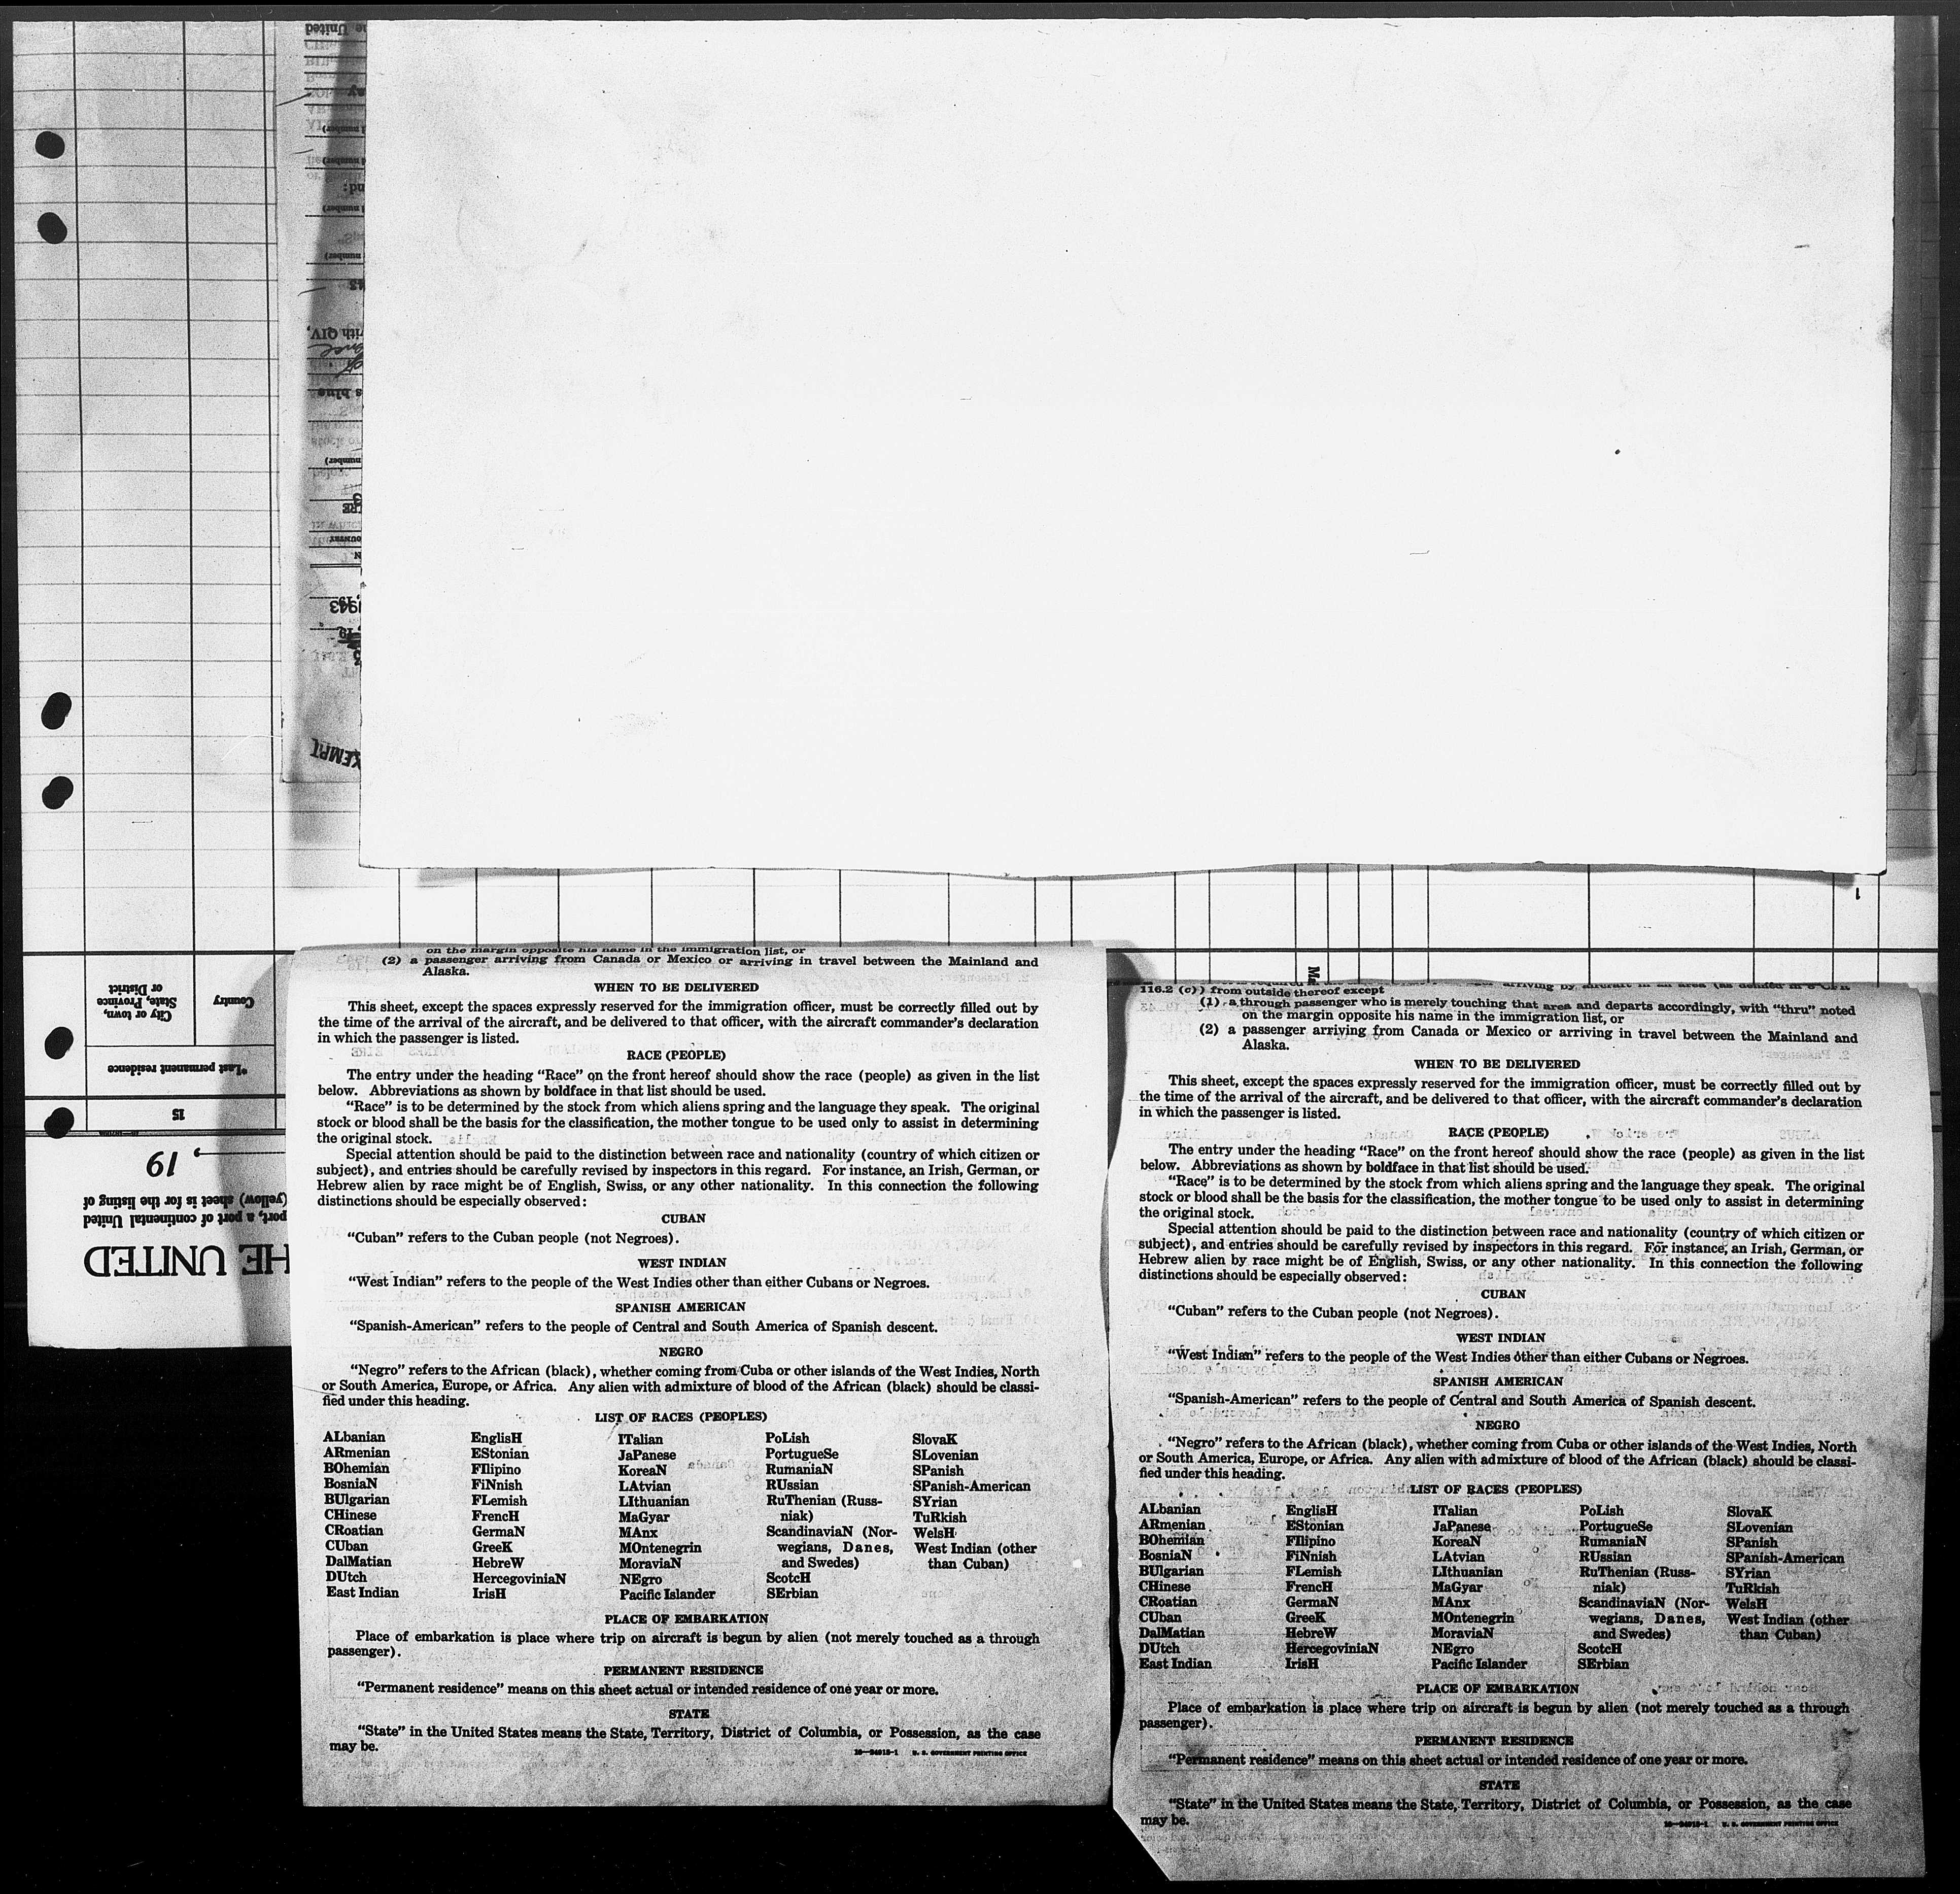 on the margin opposite his name in the immigration list, or
(2) a passenger arriving from Canada or Mexico or arriving in travel between the Mainland and
Alaska.
WHEN TO BE DELIVERED
This sheet, except the spaces expressly reserved for the immigration officer, must be correctly filled out by
the time of the arrival of the aircraft, and be delivered to that officer, with the aircraft commander's declaration
in which the passenger is listed.
RACE (PEOPLE)
The entry under the heading “Race” on the front hereof should show the race (people) as given in the list
below. Abbreviations as shown by boldface in that list should be used.
“Race” is to be determined by the stock from which aliens spring and the language they speak. The original
stock or blood shall be the basis for the classification, the mother tongue to be used only to assist in determining
the original stock.
Special attention should be paid to the distinction between race and nationality (country of which citizen or
subject), and entries should be carefully revised by inspectors in this regard. For instance, an Irish, German, or
Hebrew alien by race might be of English, Swiss, or any other nationality. In this connection the following
distinctions should be especially observed:
CUBAN
“Cuban” refers to the Cuban people (not Negroes).
WEST INDIAN
“West Indian” refers to the people of the West Indies other than either Cubans or Negroes.
SPANISH AMERICAN
“Spanish-American” refers to the people of Central and South America of Spanish descent.
NEGRO
“Negro” refers to the African (black), whether coming from Cuba or other islands of the West Indies, North
or South America, Europe, or Africa. Any alien with admixture of blood of the African (black) should be classi-
fied under this heading.
LIST OF RACES (PEOPLES)
ALbanian
ARmenian
BOhemian
BosniaN
BUlgarian
CHinese
CRoatian
CUban
DalMatian
DUtch
East Indian
EnglisH
EStonian
FIlipino
FiNnish
FLemish
FrencH
GermaN
GreeK
HebreW
HercegoviniaN
IrisH
ITalian
JaPanese
KoreaN
LAtvian
LIthuanian
MaGyar
MAnx
MOntenegrin
MoraviaN
NEgro
Pacific Islander
PoLish
PortugueSe
RumaniaN
RUssian
RuThenian (Russ-
niak)
ScandinaviaN (Nor-
wegians, Danes,
and Swedes)
ScotcH
SErbian
SlovaK
SLovenian
SPanish
SPanish-American
SYrian
TuRkish
WelsH
West Indian (other
than Cuban)
PLACE OF EMBARKATION
Place of embarkation is place where trip on aircraft is begun by alien (not merely touched as a through
passenger).
PERMANENT RESIDENCE
“Permanent residence” means on this sheet actual or intended residence of one year or more.
STATE
“State” in the United States means the State, Territory, District of Columbia, or Possession, as the case
may be.
16—24915-1 U. S. GOVERNMENT PRINTING OFFICE
116.2 (c)) from outside thereof except
(1) a through passenger who is merely touching that area and departs accordingly, with “thru” noted
on the margin opposite his name in the immigration list, or
(2) a passenger arriving from Canada or Mexico or arriving in travel between the Mainland and
Alaska.
WHEN TO BE DELIVERED
This sheet, except the spaces expressly reserved for the immigration officer, must be correctly filled out by
the time of the arrival of the aircraft, and be delivered to that officer, with the aircraft commander's declaration
in which the passenger is listed.
RACE (PEOPLE)
The entry under the heading “Race” on the front hereof should show the race (people) as given in the list
below. Abbreviations as shown by boldface in that list should be used.
“Race” is to be determined by the stock from which aliens spring and the language they speak. The original
stock or blood shall be the basis for the classification, the mother tongue to be used only to assist in determining
the original stock.
Special attention should be paid to the distinction between race and nationality (country of which citizen or
subject), and entries should be carefully revised by inspectors in this regard. For instance, an Irish, German, or
Hebrew alien by race might be of English, Swiss, or any other nationality. In this connection the following
distinctions should be especially observed:
CUBAN
“Cuban” refers to the Cuban people (not Negroes).
WEST INDIAN
“West Indian” refers to the people of the West Indies other than either Cubans or Negroes.
SPANISH AMERICAN
“Spanish-American” refers to the people of Central and South America of Spanish descent.
NEGRO
“Negro” refers to the African (black), whether coming from Cuba or other islands of the West Indies, North
or South America, Europe, or Africa. Any alien with admixture of blood of the African (black) should be classi-
fied under this heading.
LIST OF RACES (PEOPLES)
ALbanian
ARmenian
BOhemian
BosniaN
BUlgarian
CHinese
CRoatian
CUban
DalMatian
DUtch
East Indian
EnglisH
EStonian
FIlipino
FiNnish
FLemish
FrencH
GermaN
GreeK
HebreW
HercegoviniaN
IrisH
ITalian
JaPanese
KoreaN
LAtvian
LIthuanian
MaGyar
MAnx
MOntenegrin
MoraviaN
NEgro
Pacific Islander
PoLish
PortugueSe
RumaniaN
RUssian
RuThenian (Russ-
niak)
ScandinaviaN (Nor-
wegians, Danes,
and Swedes)
ScotcH
SErbian
SlovaK
SLovenian
SPanish
SPanish-American
SYrian
TuRkish
WelsH
West Indian (other
than Cuban)
PLACE OF EMBARKATION
Place of embarkation is place where trip on aircraft is begun by alien (not merely touched as a through
passenger).
PERMANENT RESIDENCE
“Permanent residence” means on this sheet actual or intended residence of one year or more.
STATE
“State” in the United States means the State, Territory, District of Columbia, or Possession, as the case
may be.
16—24915-1 U. S. GOVERNMENT PRINTING OFFICE
HE UNITED
port, a port of continental United
(yellow) sheet is for the listing of
, 19
15
*Last permanent residence
Country
City or town,
State, Province
or District